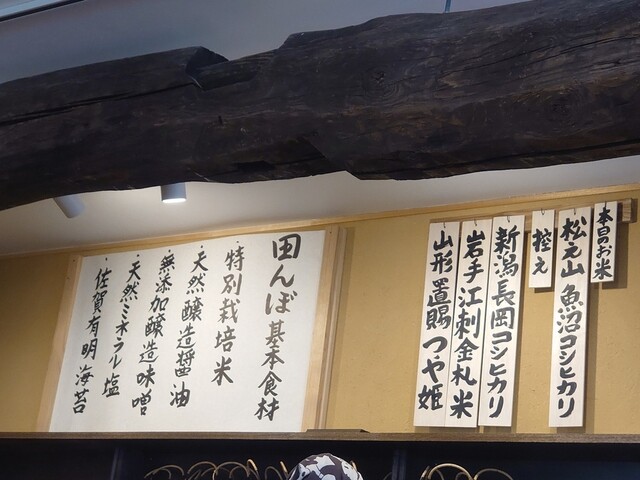 本日のお米
松之山 魚沼コシヒカリ
控え
新潟長岡コシヒカリ
岩手江刺金札米
山形置賜つや姫
田んぼ基本食材
・特別栽培米
・天然醸造醤油
・無添加醸造味噌
・天然ミネラル塩
・佐賀有明海苔